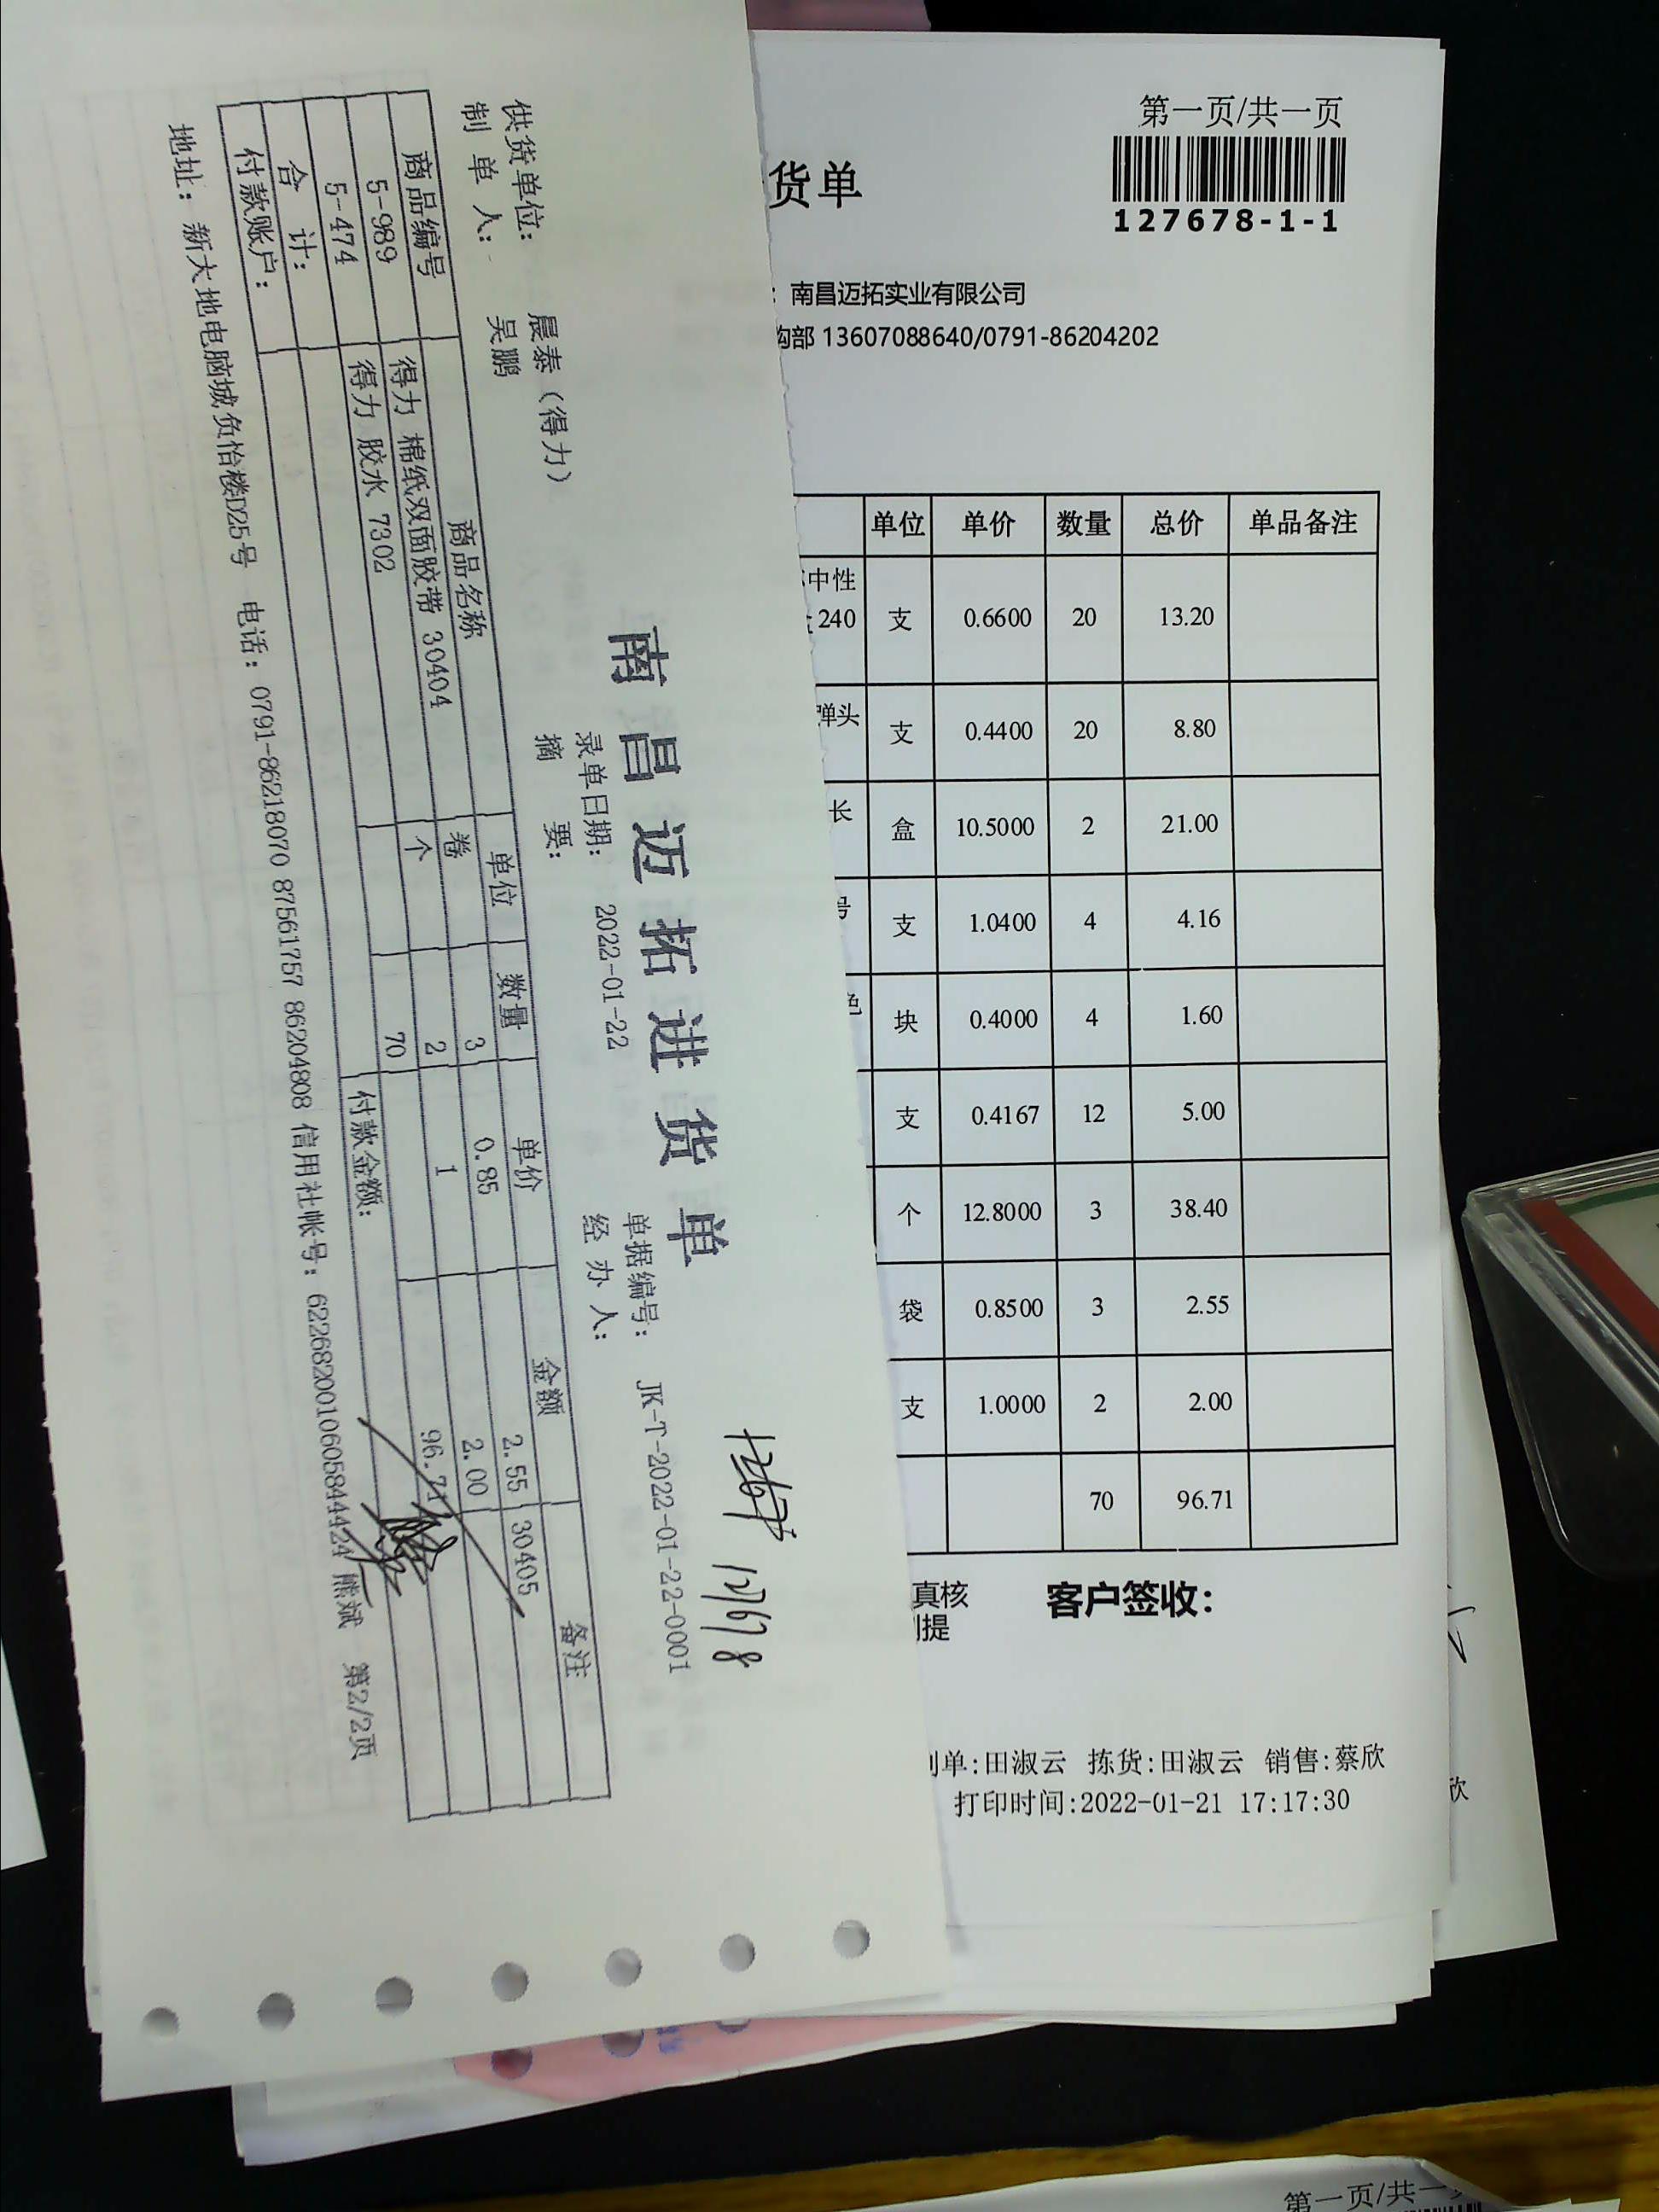 南昌迈拓进货单
12678
供货单位: 晨泰（得力） 录单日期: 2022-01-22 单据编号: JK-T-2022-01-22-0001
制单人: 吴鹏 摘要: 经办人:
商品编号 商品名称 单位 数量 单价 金额 备注
5-989 得力 棉纸双面胶带 30404 卷 3 0.85 2.55 30405
5-474 得力 胶水 7302 个 2 1 2.00
合计: 70 96.71
付款账户: 付款金额:
地址: 新大地电脑城负怡楼D25号 电话: 0791-86218070 87561757 86204808 信用社帐号: 622682001060584​4424 熊斌 第2/2页
第一页/共一页
127678-1-1
货单
: 南昌迈拓实业有限公司
购部 13607088640/0791-86204202
单位 单价 数量 总价 单品备注
中性
240 支 0.6600 20 13.20
弹头 支 0.4400 20 8.80
长 盒 10.5000 2 21.00
号 支 1.0400 4 4.16
色 块 0.4000 4 1.60
支 0.4167 12 5.00
个 12.8000 3 38.40
袋 0.8500 3 2.55
支 1.0000 2 2.00
70 96.71
真核 客户签收:
提
制单:田淑云 拣货:田淑云 销售:蔡欣
打印时间:2022-01-21 17:17:30
欣
第一页/共一